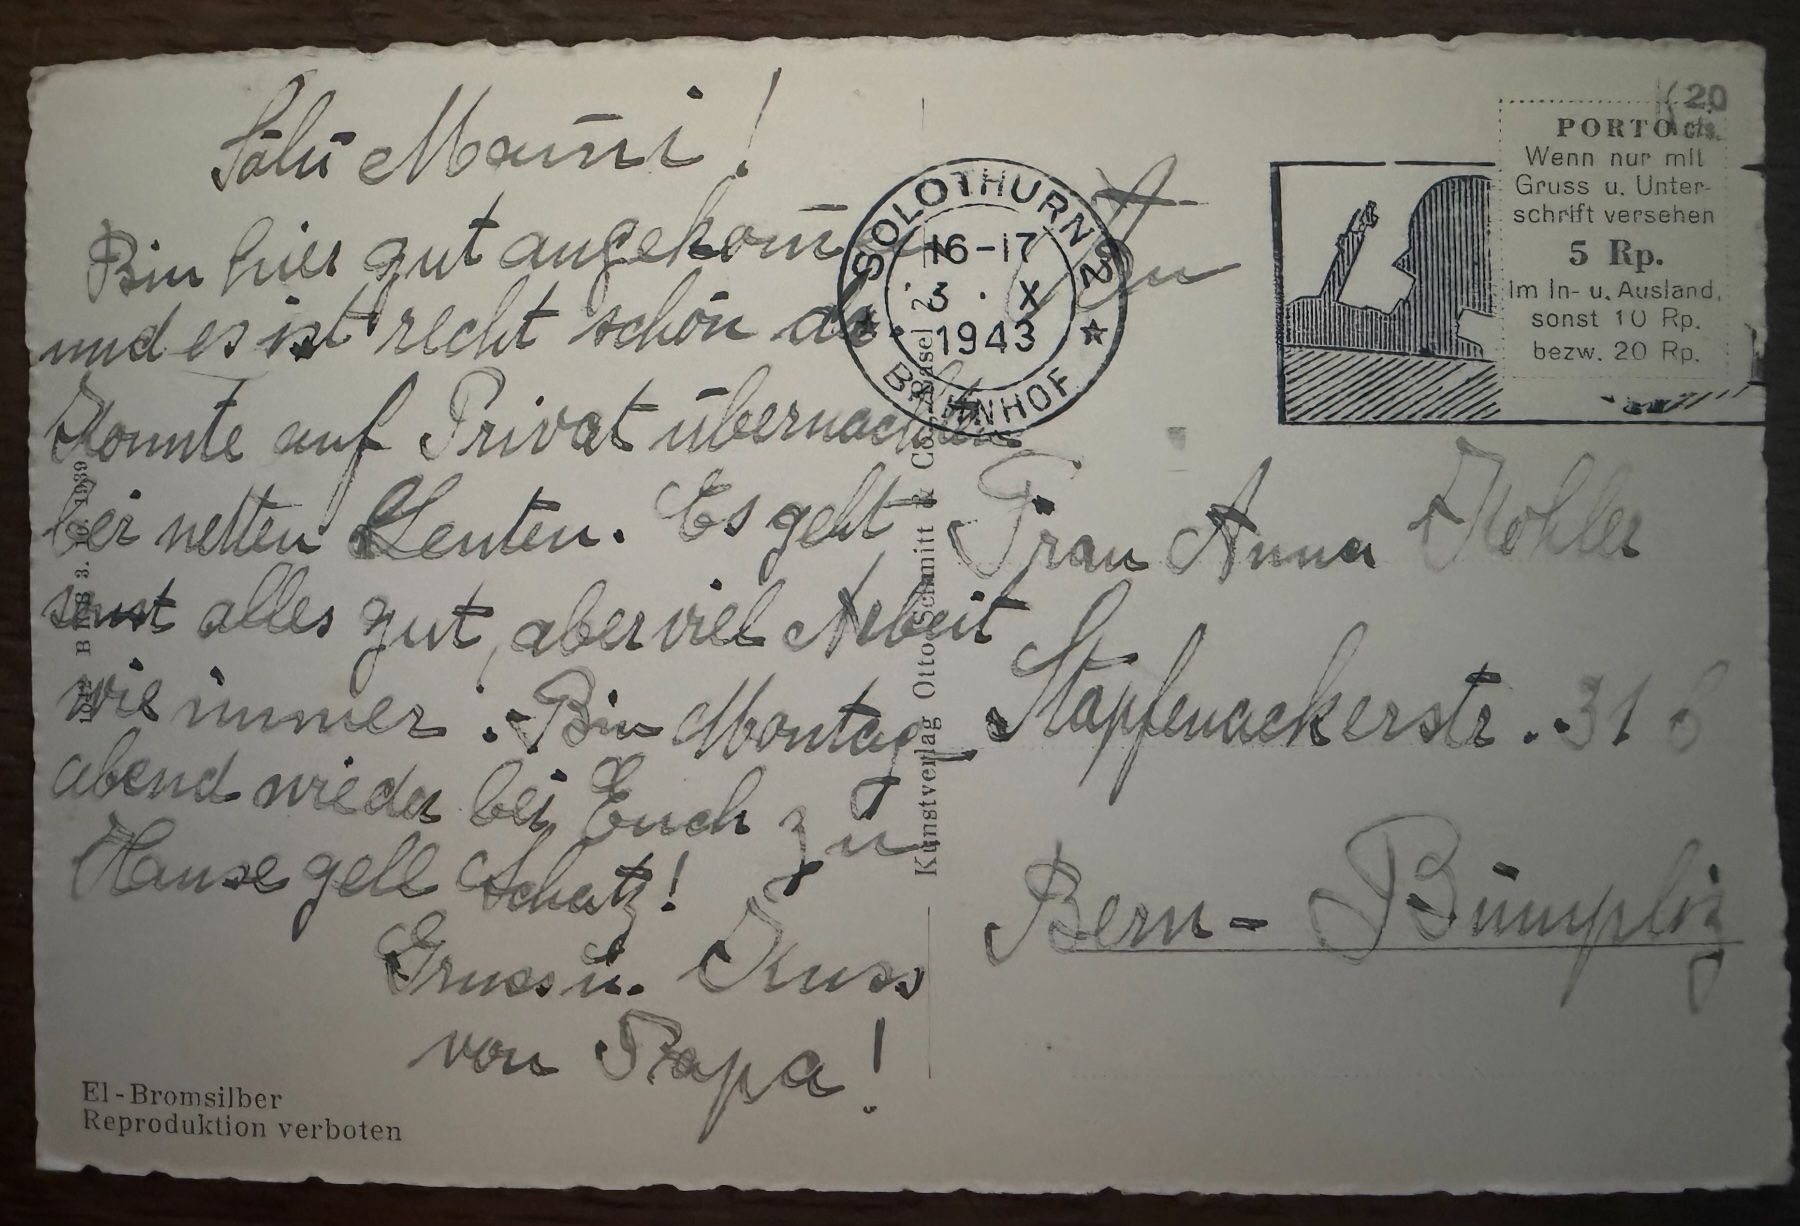 Salü Mami!
Bin hier gut angekom̄en
und es ist recht schön da.
Konnte auf Privat übernachten
bei netten Leuten. Es geht
sonst alles gut, aber viel Arbeit
wie immer. - Bin Montag
abend wieder bei Euch zu
Hause gell Schatz!
Gruss u. Kuss
von Papa!
El-Bromsilber
Reproduktion verboten
BRB 3. 10. 1939
Kunstverlag Otto Schmitt & Co. Basel 2
SOLOTHURN 2
16-17
3. X
1943
BAHNHOF
An
(20
cts.
PORTO
Wenn nur mit
Gruss u. Unter-
schrift versehen
5 Rp.
Im In- u. Ausland,
sonst 10 Rp.
bezw. 20 Rp.
Frau Anna Kohler
Stapfenackerstr. 31
Bern - Bümpliz